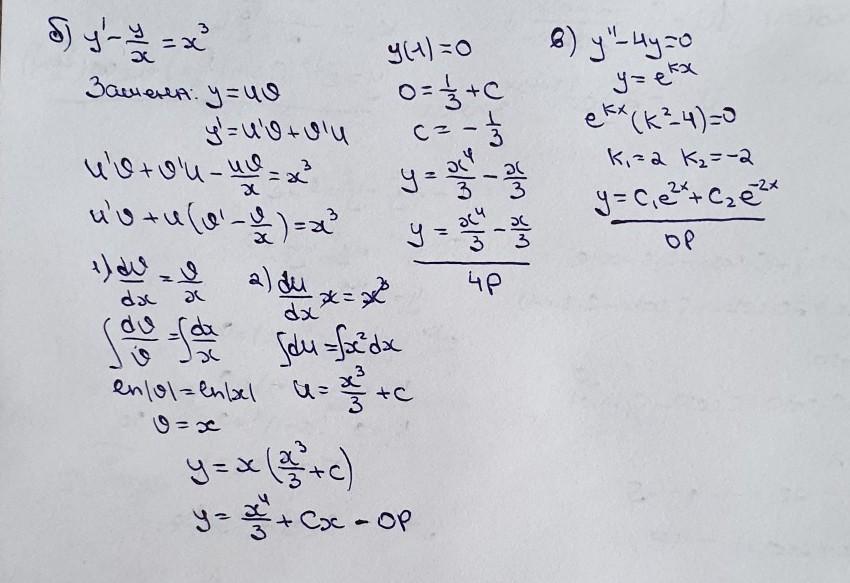 б) y' - y/x = x³
Замена: y = uv
y' = u'v + v'u
u'v + v'u - uv/x = x³
u'v + u(v' - v/x) = x³
1) dv/dx = v/x
∫dv/v = ∫dx/x
ln|v| = ln|x|
v = x
2) du/dx x = x³
∫du = ∫x²dx
u = x³/3 + c
y = x(x³/3 + c)
y = x⁴/3 + Cx - ОР
y(1) = 0
0 = 1/3 + c
c = - 1/3
y = x⁴/3 - x/3
y = x⁴/3 - x/3
ЧР
в) y'' - 4y = 0
y = e^kx
e^kx (k² - 4) = 0
k₁ = 2 k₂ = -2
y = C₁e^2x + C₂e^-2x
ОР